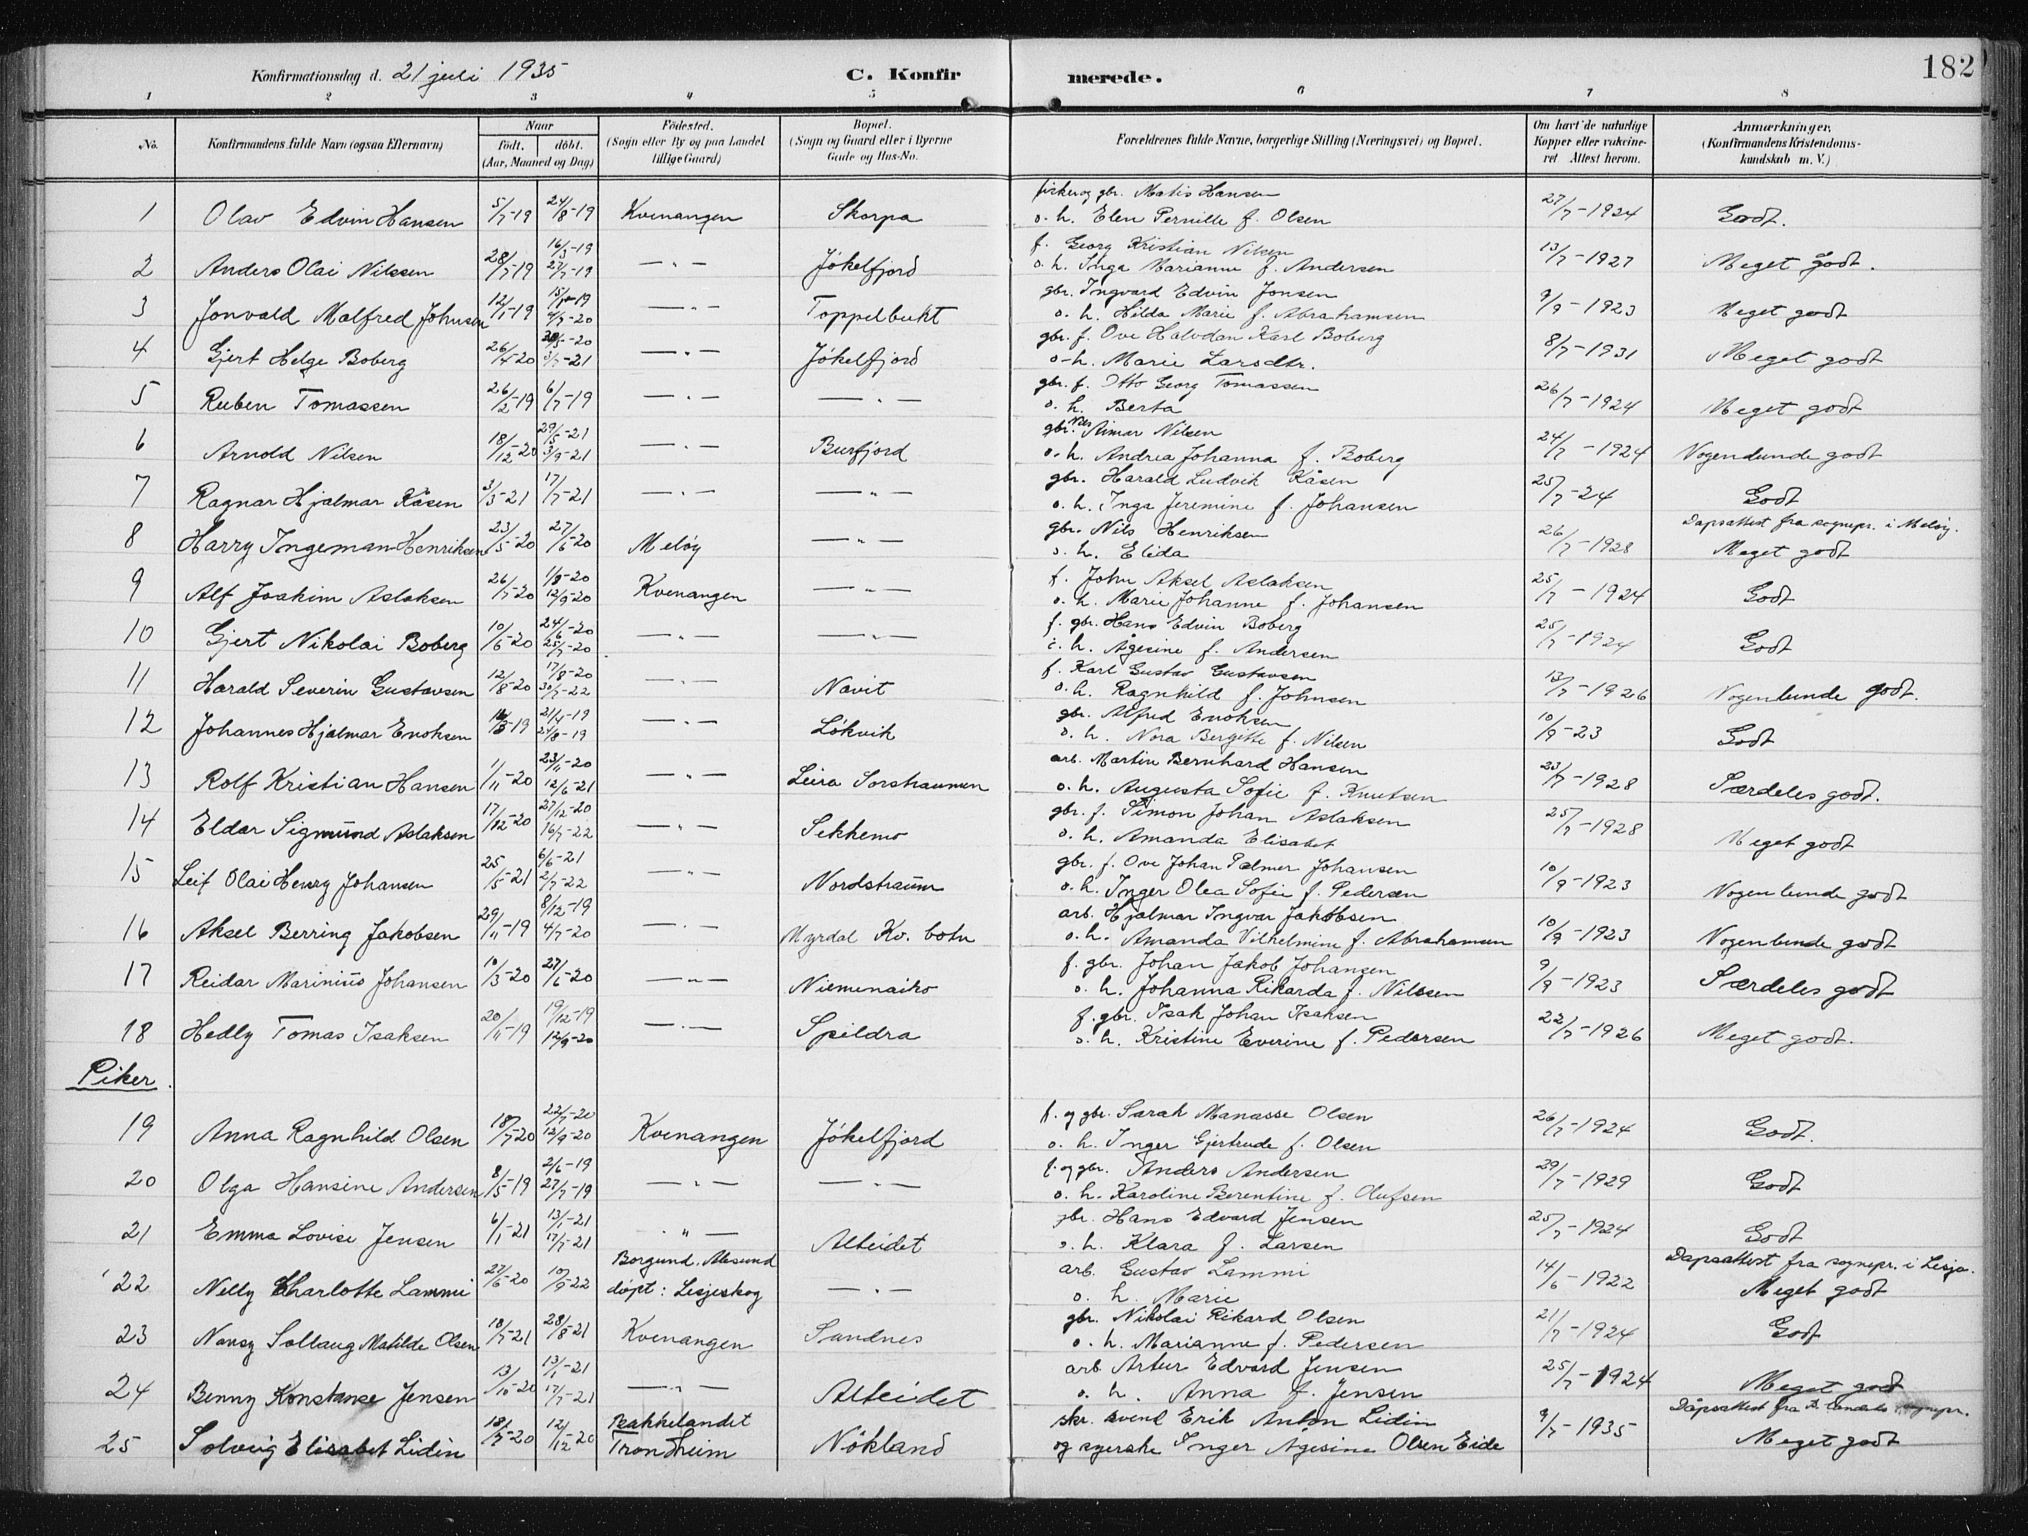 182
Konfirmationsdag d. 21 juli 1935 C. Konfirmerede.
1 2 3 4 5 6 7 8
No. Konfirmandens fulde Navn (ogsaa Efternavn) Naar födt. döbt. (Aar, Maaned og Dag) Födested. (Sogn eller By og paa Landet tillige Gaard) Bopæl. (Sogn og Gaard eller i Byerne Gade og Hus-No. Forældrenes fulde Navne, borgerlige Stilling (Næringsvei) og Bopæl. Om havt de naturlige Kopper eller vakcineret Attest herom. Anmærkninger. (Konfirmandens Kristendomskundskab m. V.)
1 Olav Edvin Hansen 5/7-19 24/8-19 Kvenangen Skorpa fisker og gbr. Matis Hansen o. h. Elen Pernille f. Olsen 27/7-1924 Godt.
2 Anders Olai Nilssen 28/7-19 16/3-19 27/7-19 — " — Jökelfjord f. Georg Kristian Nilsen o. h. Inga Marianne f. Andersen 13/7-1927 Meget godt.
3 Jonvald Malfred Johnsen 12/1-19 4/7-20 — " — Toppelbukt gbr. Ingvard Edvin Jonsen o. h. Hilda Marie f. Abrahamsen 9/9-1923 Meget godt
4 Gjert Helge Boberg 26/4-20 3/7-21 — " — Jökelfjord gbr. f. Ove Halvdan Karl Boberg o. h. Marie Larsdtr. 8/7-1931 Meget godt
5 Ruben Tomassen 26/2-19 6/7-19 — " — — " — gbr. f. Otto Georg Tomassen o. h. Berta 26/7-1924 Meget godt
6 Arnold Nilsen 18/12-20 29/5-21 3/9-21 — " — Burfjord gbr. Nils Aimar Nilsen o. h. Andrea Johanna f. Boberg 24/7-1924 Nogenlunde godt
7 Ragnar Hjalmar Kåsen 3/3-21 17/7-21 — " — — " — gbr. Harald Ludvik Kåsen o. h. Inga Jeremine f. Johansen 25/7-24 Godt
8 Harry Ingeman Henriksen 23/5-20 27/6-20 Melöy — " — gbr. Nils Henriksen o. h. Elida 26/7-1928 Dåpsattest fra sognepr. i Melöy. Meget godt
9 Alf Joakim Aslaksen 26/7-20 1/8-20 12/9-20 Kvenangen — " — f. John Aksel Aslaksen o. h. Marie Johanne f. Johansen 25/7-1924 Godt
10 Gjert Nikolai Boberg 10/6-20 24/6-20 25/7-20 — " — — " — f. gbr. Hans Edvin Boberg o. h. Ågesine f. Andersen 25/7-1924 Godt
11 Harald Severin Gustavsen 12/8-20 17/8-20 30/7-22 — " — Navit f. Karl Gustav Gustavsen o. h. Ragnhild f. Johnsen 13/7-1926 Nogenlunde godt.
12 Johannes Hjalmar Enoksen 21/4-19 24/8-19 — " — Lökvik gbr. Alfred Enoksen o. h. Nora Bergitte f. Nilsen 10/9-23 Godt
13 Rolf Kristian Hansen 1/11-20 23/11-20 12/6-21 — " — Leira Sorstraumen arb. Martin Bernhard Hansen o. h. Augusta Sofie f. Knutsen 23/7-1928 Særdeles godt.
14 Eldar Sigmund Aslaksen 17/12-20 27/12-20 16/7-22 — " — Sekkemo gbr. f. Simon Johan Aslaksen o. h. Amanda Elisabet 25/7-1928 Meget godt
15 Leif Olai Henry Johansen 25/5-21 6/6-21 2/7-22 — " — Nordstraum gbr. f. Ove Johan Palmer Johansen o. h. Inger Olea Sofie f. Pedersen 10/9-1923 Nogenlunde godt
16 Aksel Berring Jakobsen 29/11-19 8/12-19 4/7-20 — " — Myrdal Kv. botn arb. Hjalmar Ingvar Jakobsen o. h. Amanda Vilhelmine f. Abrahamsen 10/9-1923 Nogenlunde godt
17 Reidar Marinius Johansen 10/3-20 27/6-20 — " — Niemenaiko f. gbr. Johan Jakob Johansen o. h. Johanna Rikarda f. Nilssen 9/9-1923 Særdeles godt
18 Hedly Tomas Isaksen 20/11-19 19/12-19 12/9-20 — " — Spildra f. gbr. Isak Johan Isaksen o. h. Kristine Everine f. Pedersen 22/7-1926 Meget godt.
Piker.
19 Anna Ragnhild Olsen 18/7-20 22/7-20 12/9-20 Kvenangen Jökelfjord f. og gbr. Sarah Manasse Olsen o. h. Inger Gjertrude f. Olsen 26/7-1924 Godt.
20 Olga Hansine Andersen 8/5-19 2/6-19 27/7-19 — " — — " — f. og gbr. Anders Andersen o. h. Karoline Berentine f. Olufsen 29/7-1929 Godt
21 Emma Lovise Jensen 6/1-21 13/1-21 17/7-21 — " — Alteidet gbr. Hans Edvard Jensen o. h. Klara f. Larsen 25/7-1924 Godt
22 Nelly Charlotte Lammi 27/6-20 10/9-22 Borgund, Ålesund döpt: Lesjeskog — " — arb. Gustav Lammi o. h. Marie 14/6-1922 Dåpsattest fra sognepr. i Lesja. Meget godt
23 Nancy Sollaug Matilde Olsen 18/7-21 28/8-21 Kvenangen Sandnes gbr. Nikolai Rikard Olsen o. h. Marianne f. Pedersen 21/7-1924 Godt
24 Benny Konstanse Jensen 13/10-20 13/1-21 17/7-21 — " — Alteidet arb Artur Edvard Jensen o. h. Anna f. Jensen 25/7-1924 Meget godt
25 Solveig Elisabet Lidin 18/7-20 12/12-20 Bakkelandet Trondheim Nökland skr. svend Erik Anton Lidin og syerske Inger Ågesine Olsen Eide 9/7-1935 Dåpsattest fra sognepr. Meget godt